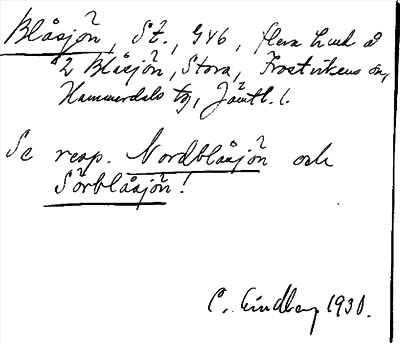 Blåsjön, St., 946, flera hund å
2 Blåsjön, Stora, Frostvikens sn,
Hammerdals tg, Jämtl. l.
Se resp. Nordblåsjön och
Sörblåsjön!
C. Lindberg 1930.